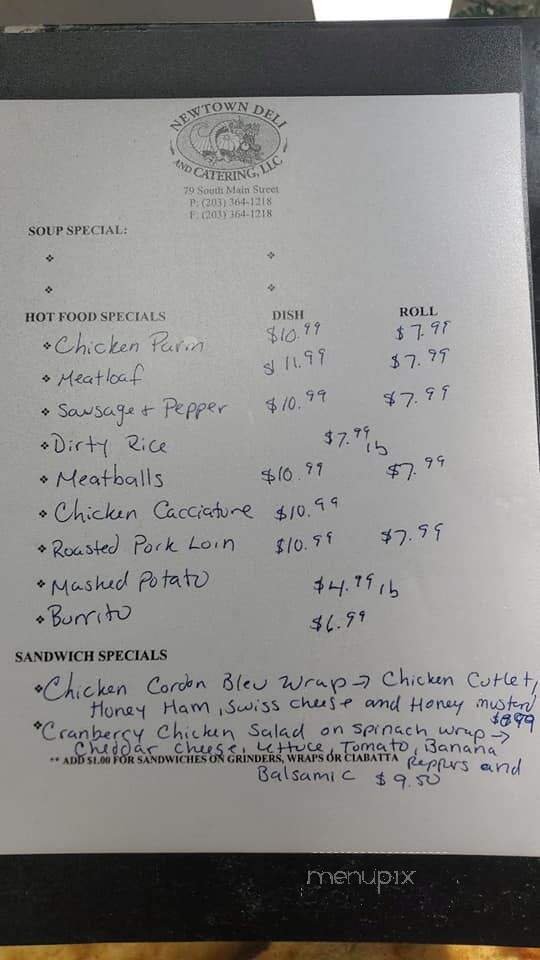 NEWTOWN DELI
AND CATERING, LLC
79 South Main Street
P: (203) 364-1218
F: (203) 364-1218
SOUP SPECIAL:
HOT FOOD SPECIALS DISH ROLL
Chicken Parm $10.99 $7.99
Meatloaf $11.99 $7.99
Sausage + Pepper $10.99 $7.99
Dirty Rice $7.99 lb
Meatballs $10.99 $7.99
Chicken Cacciatore $10.99
Roasted Pork Loin $10.99 $7.99
Mashed Potato $4.99 lb
Burrito $6.99
SANDWICH SPECIALS
Chicken Cordon Bleu Wrap → Chicken Cutlet,
Honey Ham, Swiss cheese and Honey mustard
Cranberry Chicken Salad on spinach wrap →
Cheddar cheese, Lettuce, Tomato, Banana
** ADD $1.00 FOR SANDWICHES ON GRINDERS, WRAPS OR CIABATTA
Peppers and
Balsamic $9.50
menupix